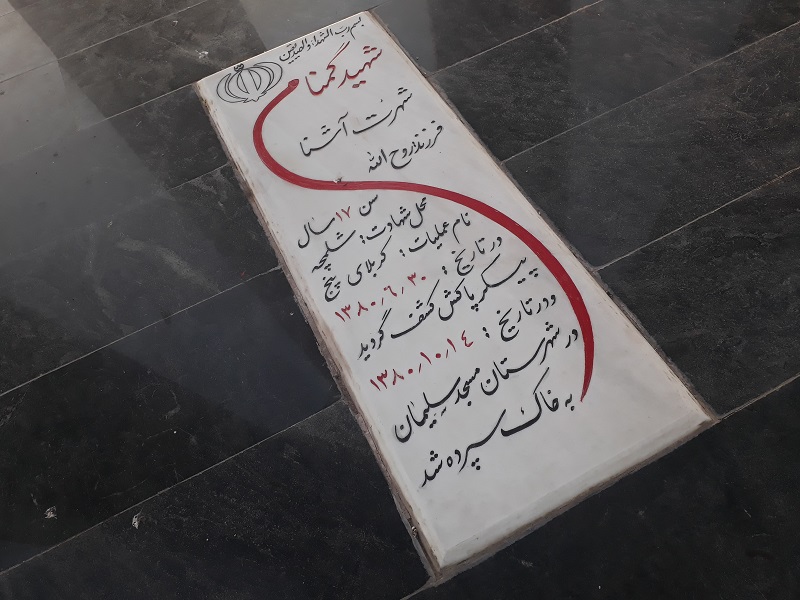 بسم رب الشهداء والصدیقین
شهید گمنام
شهرت آشنا
فرزند: روح الله
سن ۱۷ سال
محل شهادت: شلمچه
نام عملیات: کربلای پنج
در تاریخ: ۱۳۸۰٫۶٫۳۰
پیکر پاکش کشف گردید
و در تاریخ: ۱۳۸۰٫۱۰٫۱٤
در شهرستان مسجد سلیمان
به خاک سپرده شد